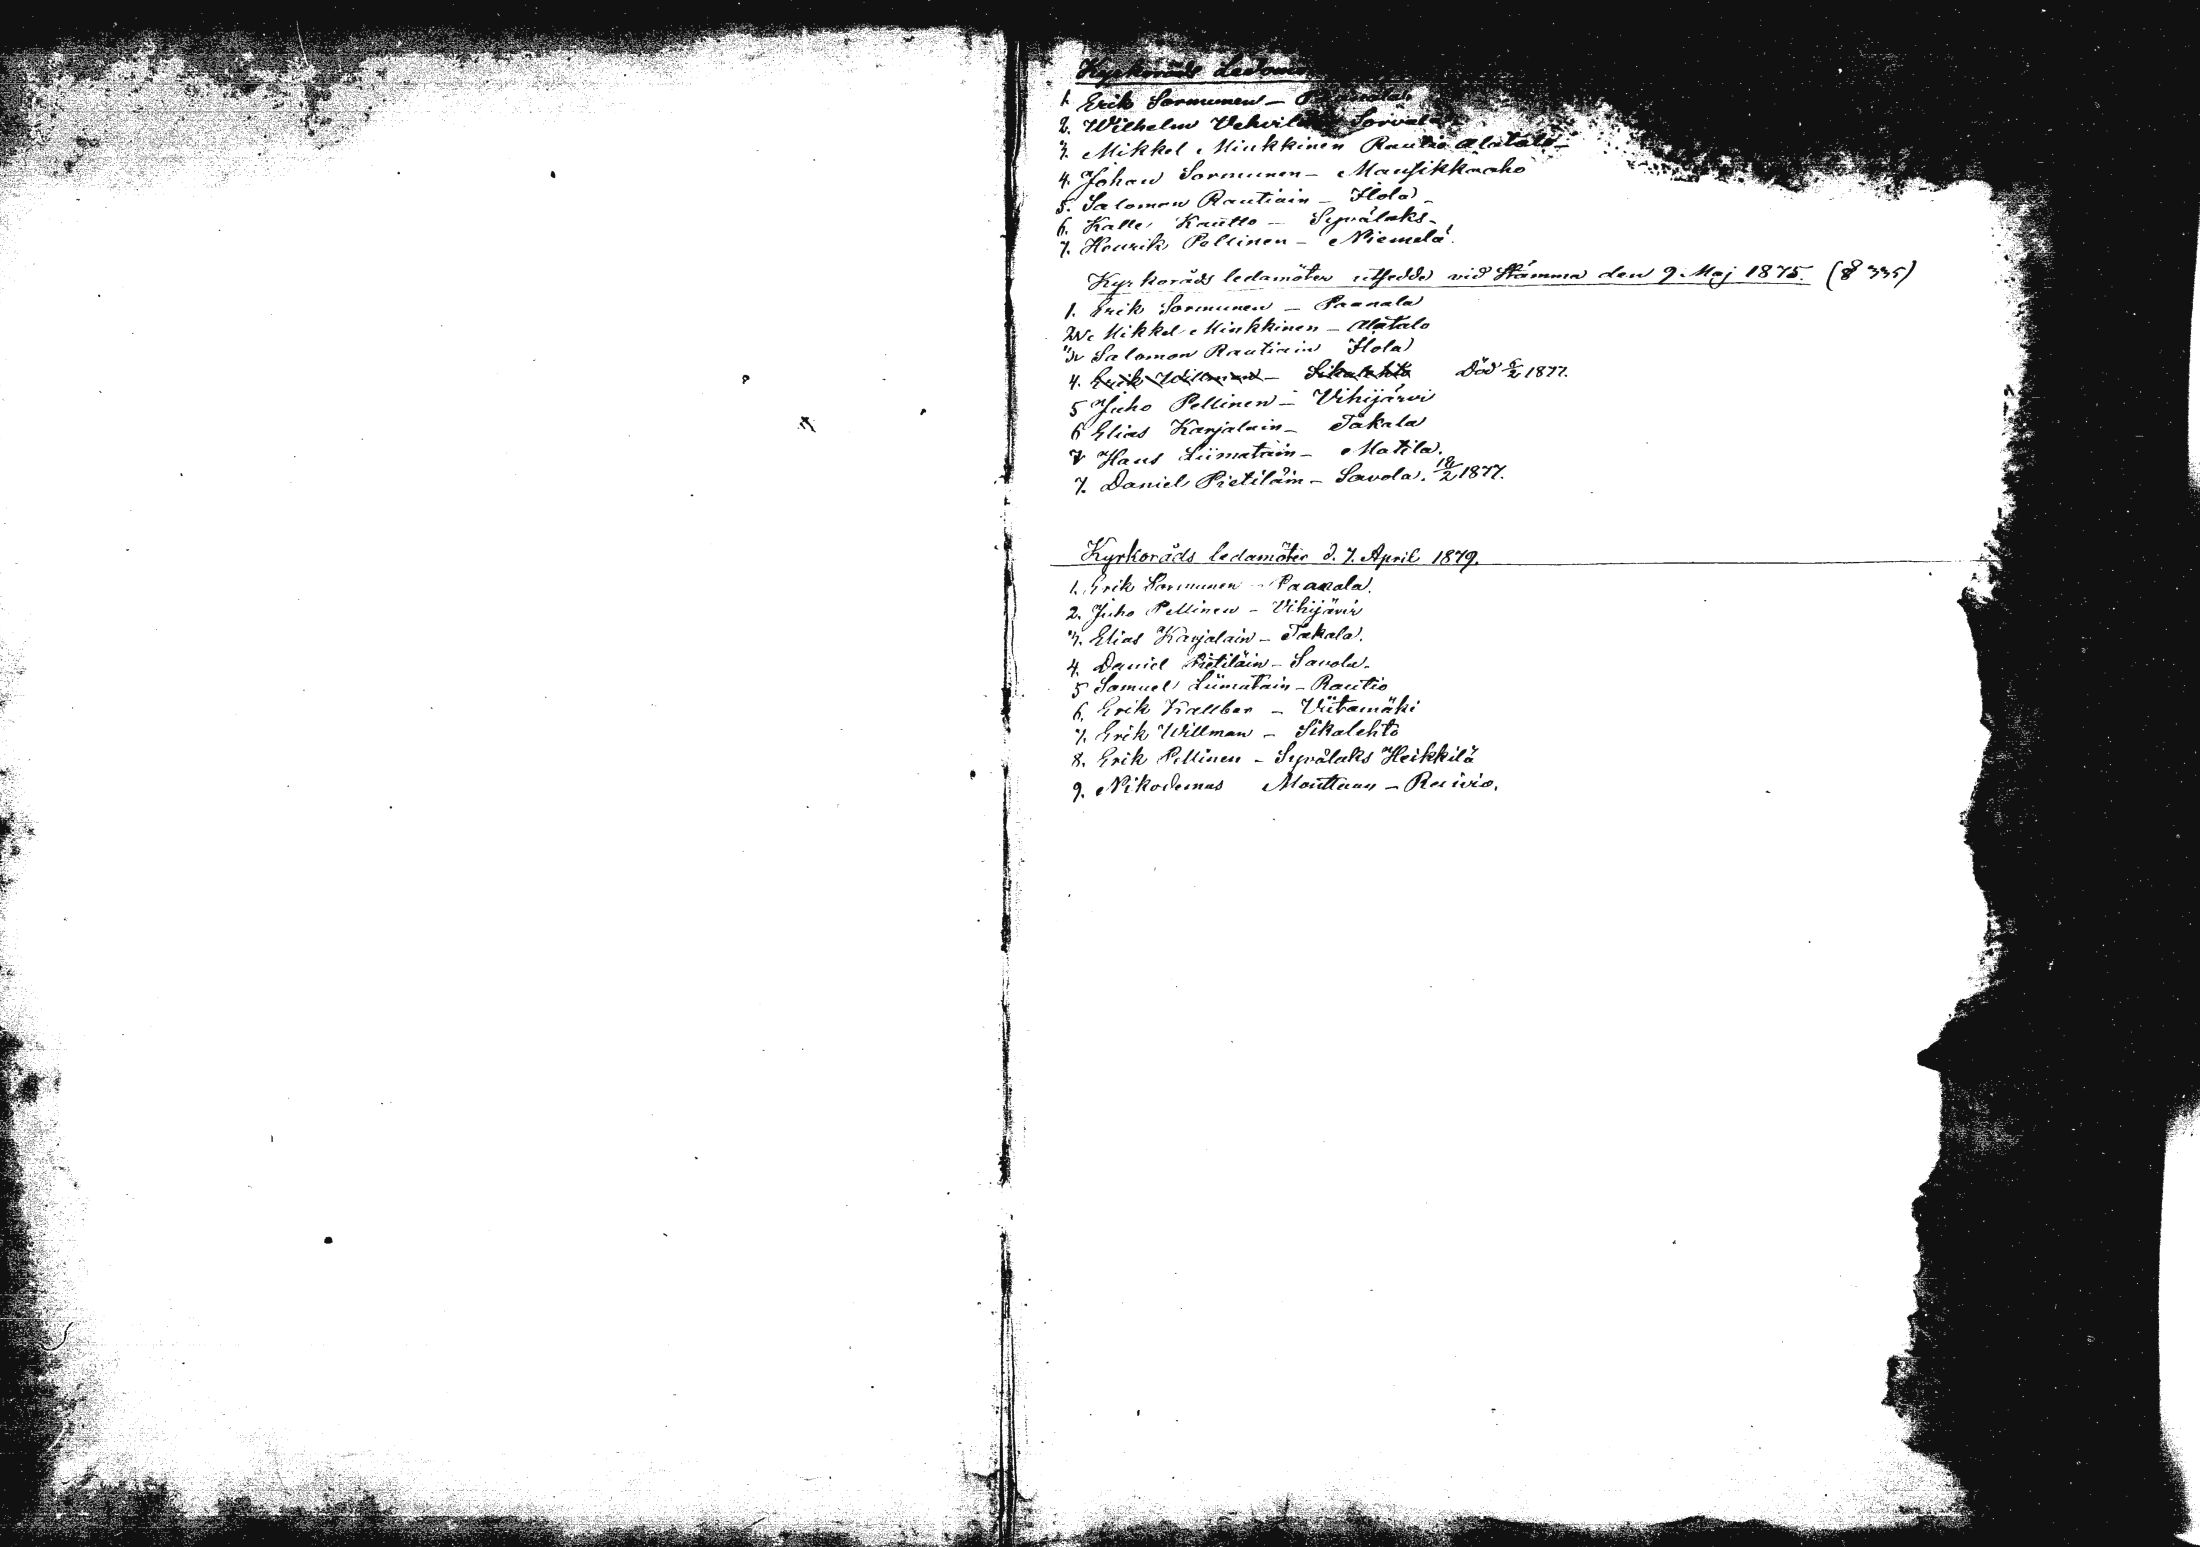 Kyrkoråds Ledam
1. Erik Sormunen – Paanala
2. Wilhelm Vehvilä Sorvala
3. Mikkel Minkkinen Rautio Alatalo –
4. Johan Sormunen – Mansikkaaho
5. Salomon Rautiain – Ilola –
6. Kalle Kautto – Syvälaks –
7. Henrik Pellinen – Niemelä.
Kyrkoråds ledamöter utsedde vid Stämma den 9. Maj 1875. (§ 335)
1. Erik Sormunen – Paanala
2. Mikkel Minkkinen – Alatalo
3 Salomon Rautiain Ilola
4. Erik Willman – Sikalehto Död 1877.
5 Juho Pellinen – Vihijärvi
6 Elias Karjalain – Takala
7 Hans Liimatain – Matila.
7. Daniel Pietiläin – Savola. 18/2 1877.
Kyrkoråds ledamöter d. 7. April 1879.
1. Erik Sormunen – Paanala.
2. Juho Pellinen – Vihijärvi
3. Elias Karjalain – Takala.
4. Daniel Pietiläin – Savola.
5 Samuel Liimatain – Rautio
6. Erik Kallber – Viitamäki
7. Erik Willman – Sikalehto
8. Erik Pellinen – Syvälaks Heikkilä
9. Nikodemus – Raivio.